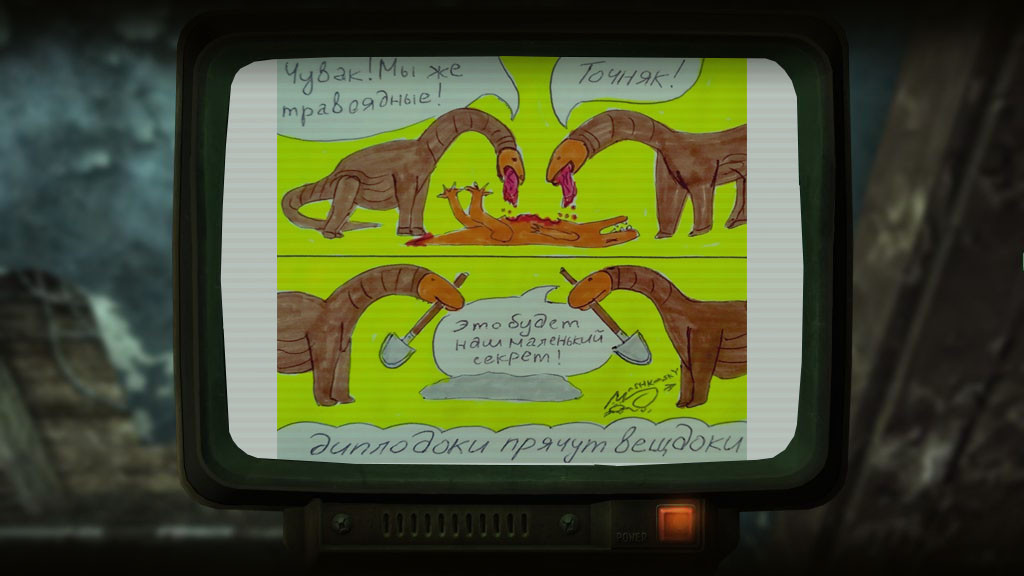 Чувак! Мы же
травоядные!
Точняк!
Это будет
наш маленький
секрет!
диплодоки прячут вещдоки
POWER